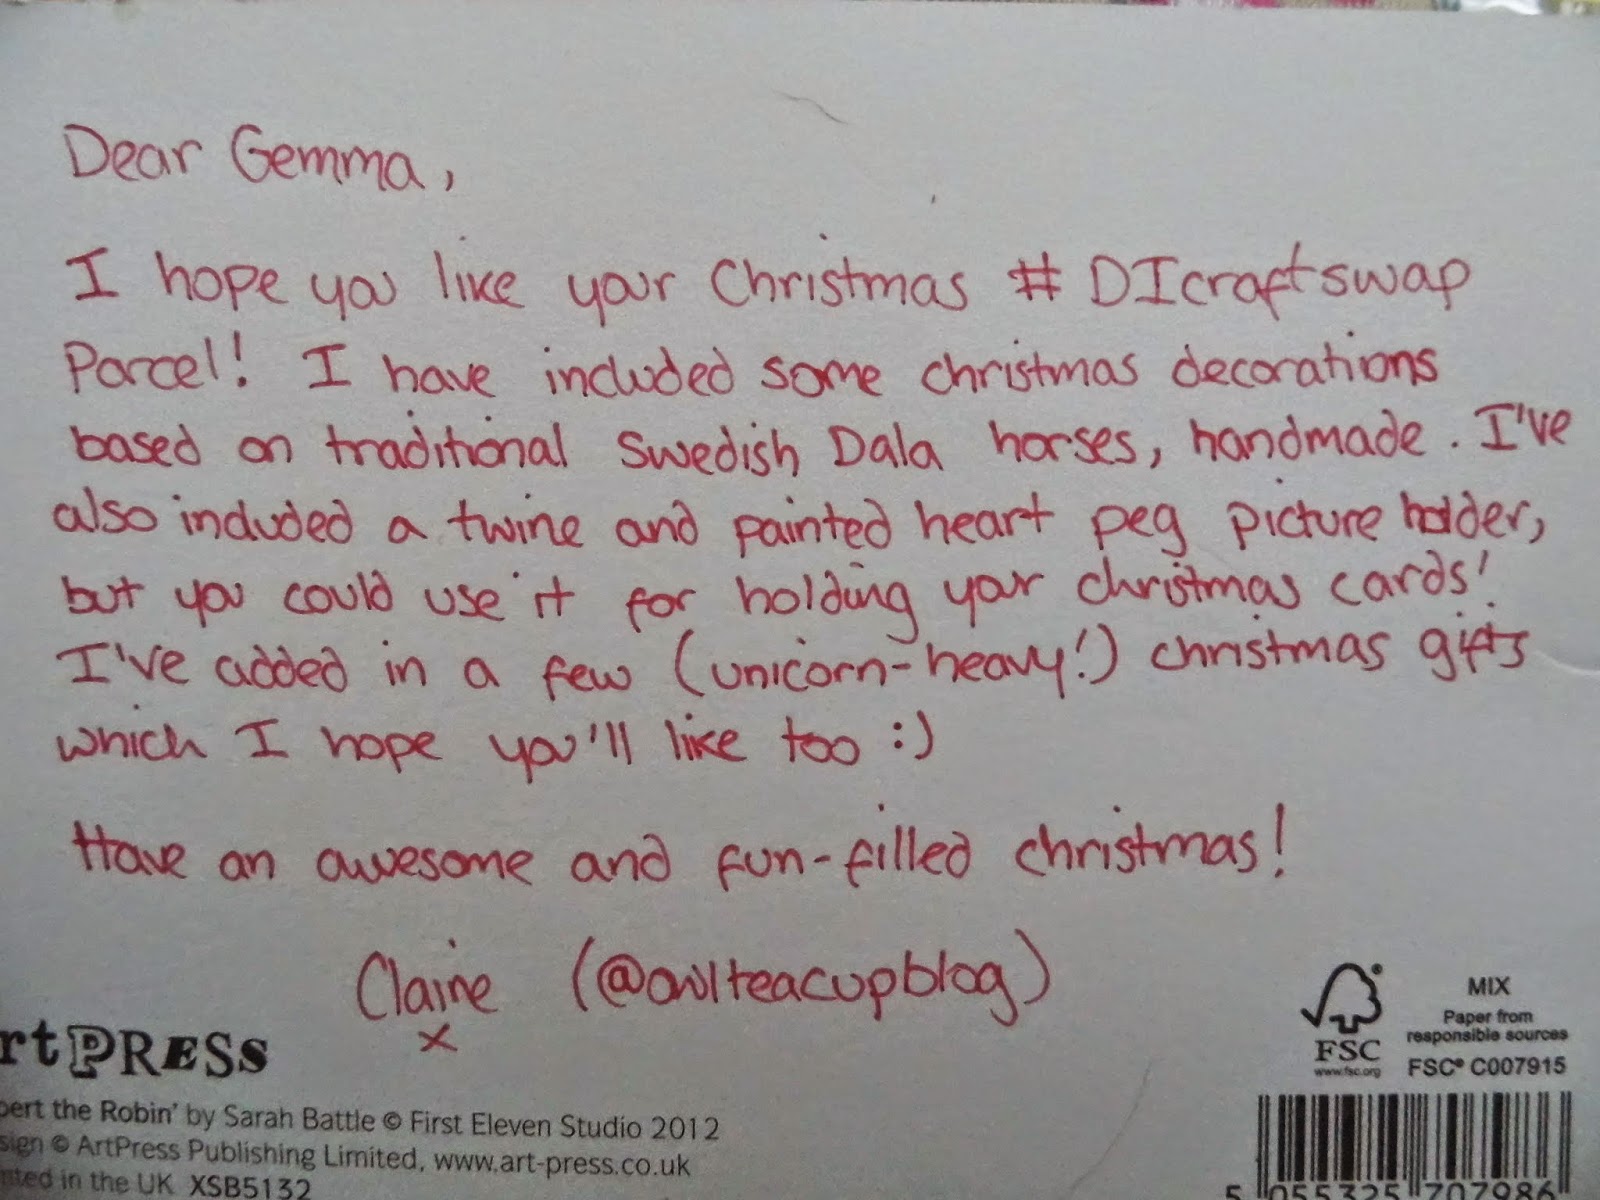 Dear Gemma,
I hope you like your Christmas #DIcraftswap
Parcel! I have included some christmas decorations
based on traditional Swedish Dala horses, handmade. I've
also included a twine and painted heart peg picture holder,
but you could use it for holding your christmas cards!
I've added in a few (unicorn-heavy!) christmas gifts
which I hope you'll like too :)
Have an awesome and fun-filled christmas!
Claire (@owlteacupblog)
x
rtPRESS
bert the Robin' by Sarah Battle © First Eleven Studio 2012
sign © ArtPress Publishing Limited, www.art-press.co.uk
nted in the UK XSB5132
MIX
Paper from
responsible sources
FSC® C007915
FSC
www.fsc.org
5 055325 707986